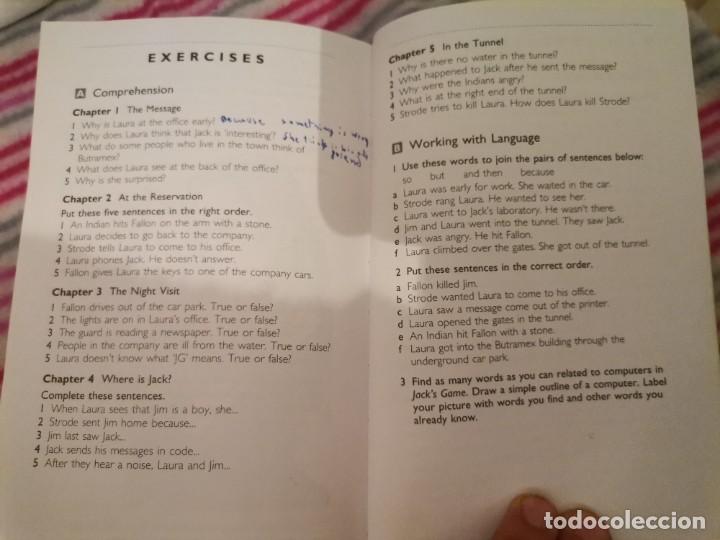 EXERCISES
A Comprehension
Chapter 1 The Message
1 Why is Laura at the office early? Because something is wrong
2 Why does Laura think that Jack is 'interesting'? She think is
3 What do some people who live in the town think of
Butramex?
4 What does Laura see at the back of the office?
5 Why is she surprised?
Chapter 2 At the Reservation
Put these five sentences in the right order.
1 An Indian hits Fallon on the arm with a stone.
2 Laura decides to go back to the company.
3 Strode tells Laura to come to his office.
4 Laura phones Jack. He doesn't answer.
5 Fallon gives Laura the keys to one of the company cars.
Chapter 3 The Night Visit
1 Fallon drives out of the car park. True or false?
2 The lights are on in Laura's office. True or false?
3 The guard is reading a newspaper. True or false?
4 People in the company are ill from the water. True or false?
5 Laura doesn't know what 'JG' means. True or false?
Chapter 4 Where is Jack?
Complete these sentences.
1 When Laura sees that Jim is a boy, she...
2 Strode sent Jim home because...
3 Jim last saw Jack...
4 Jack sends his messages in code...
5 After they hear a noise, Laura and Jim...
Chapter 5 In the Tunnel
1 Why is there no water in the tunnel?
2 What happened to Jack after he sent the message?
3 Why were the Indians angry?
4 What is at the right end of the tunnel?
5 Strode tries to kill Laura. How does Laura kill Strode?
B Working with Language
1 Use these words to join the pairs of sentences below:
so but and then because
a Laura was early for work. She waited in the car.
b Strode rang Laura. He wanted to see her.
c Laura went to Jack's laboratory. He wasn't there.
d Jim and Laura went into the tunnel. They saw Jack.
e Jack was angry. He hit Fallon.
f Laura climbed over the gates. She got out of the tunnel.
2 Put these sentences in the correct order.
a Fallon killed Jim.
b Strode wanted Laura to come to his office.
c Laura saw a message come out of the printer.
d Laura opened the gates in the tunnel.
e An Indian hit Fallon with a stone.
f Laura got into the Butramex building through the
underground car park.
3 Find as many words as you can related to computers in
Jack's Game. Draw a simple outline of a computer. Label
your picture with words you find and other words you
already know.
todocoleccion.net